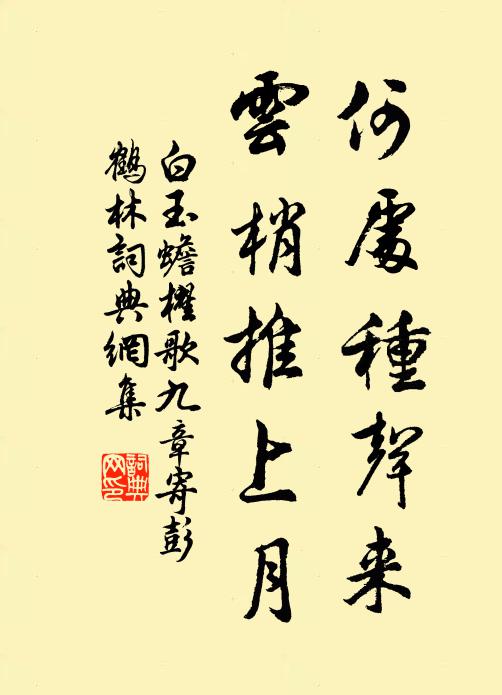 何處種聲来
雲梢推上月
白玉蟾櫂歌九章寄彭
鶴林詞典網集
詞典网印